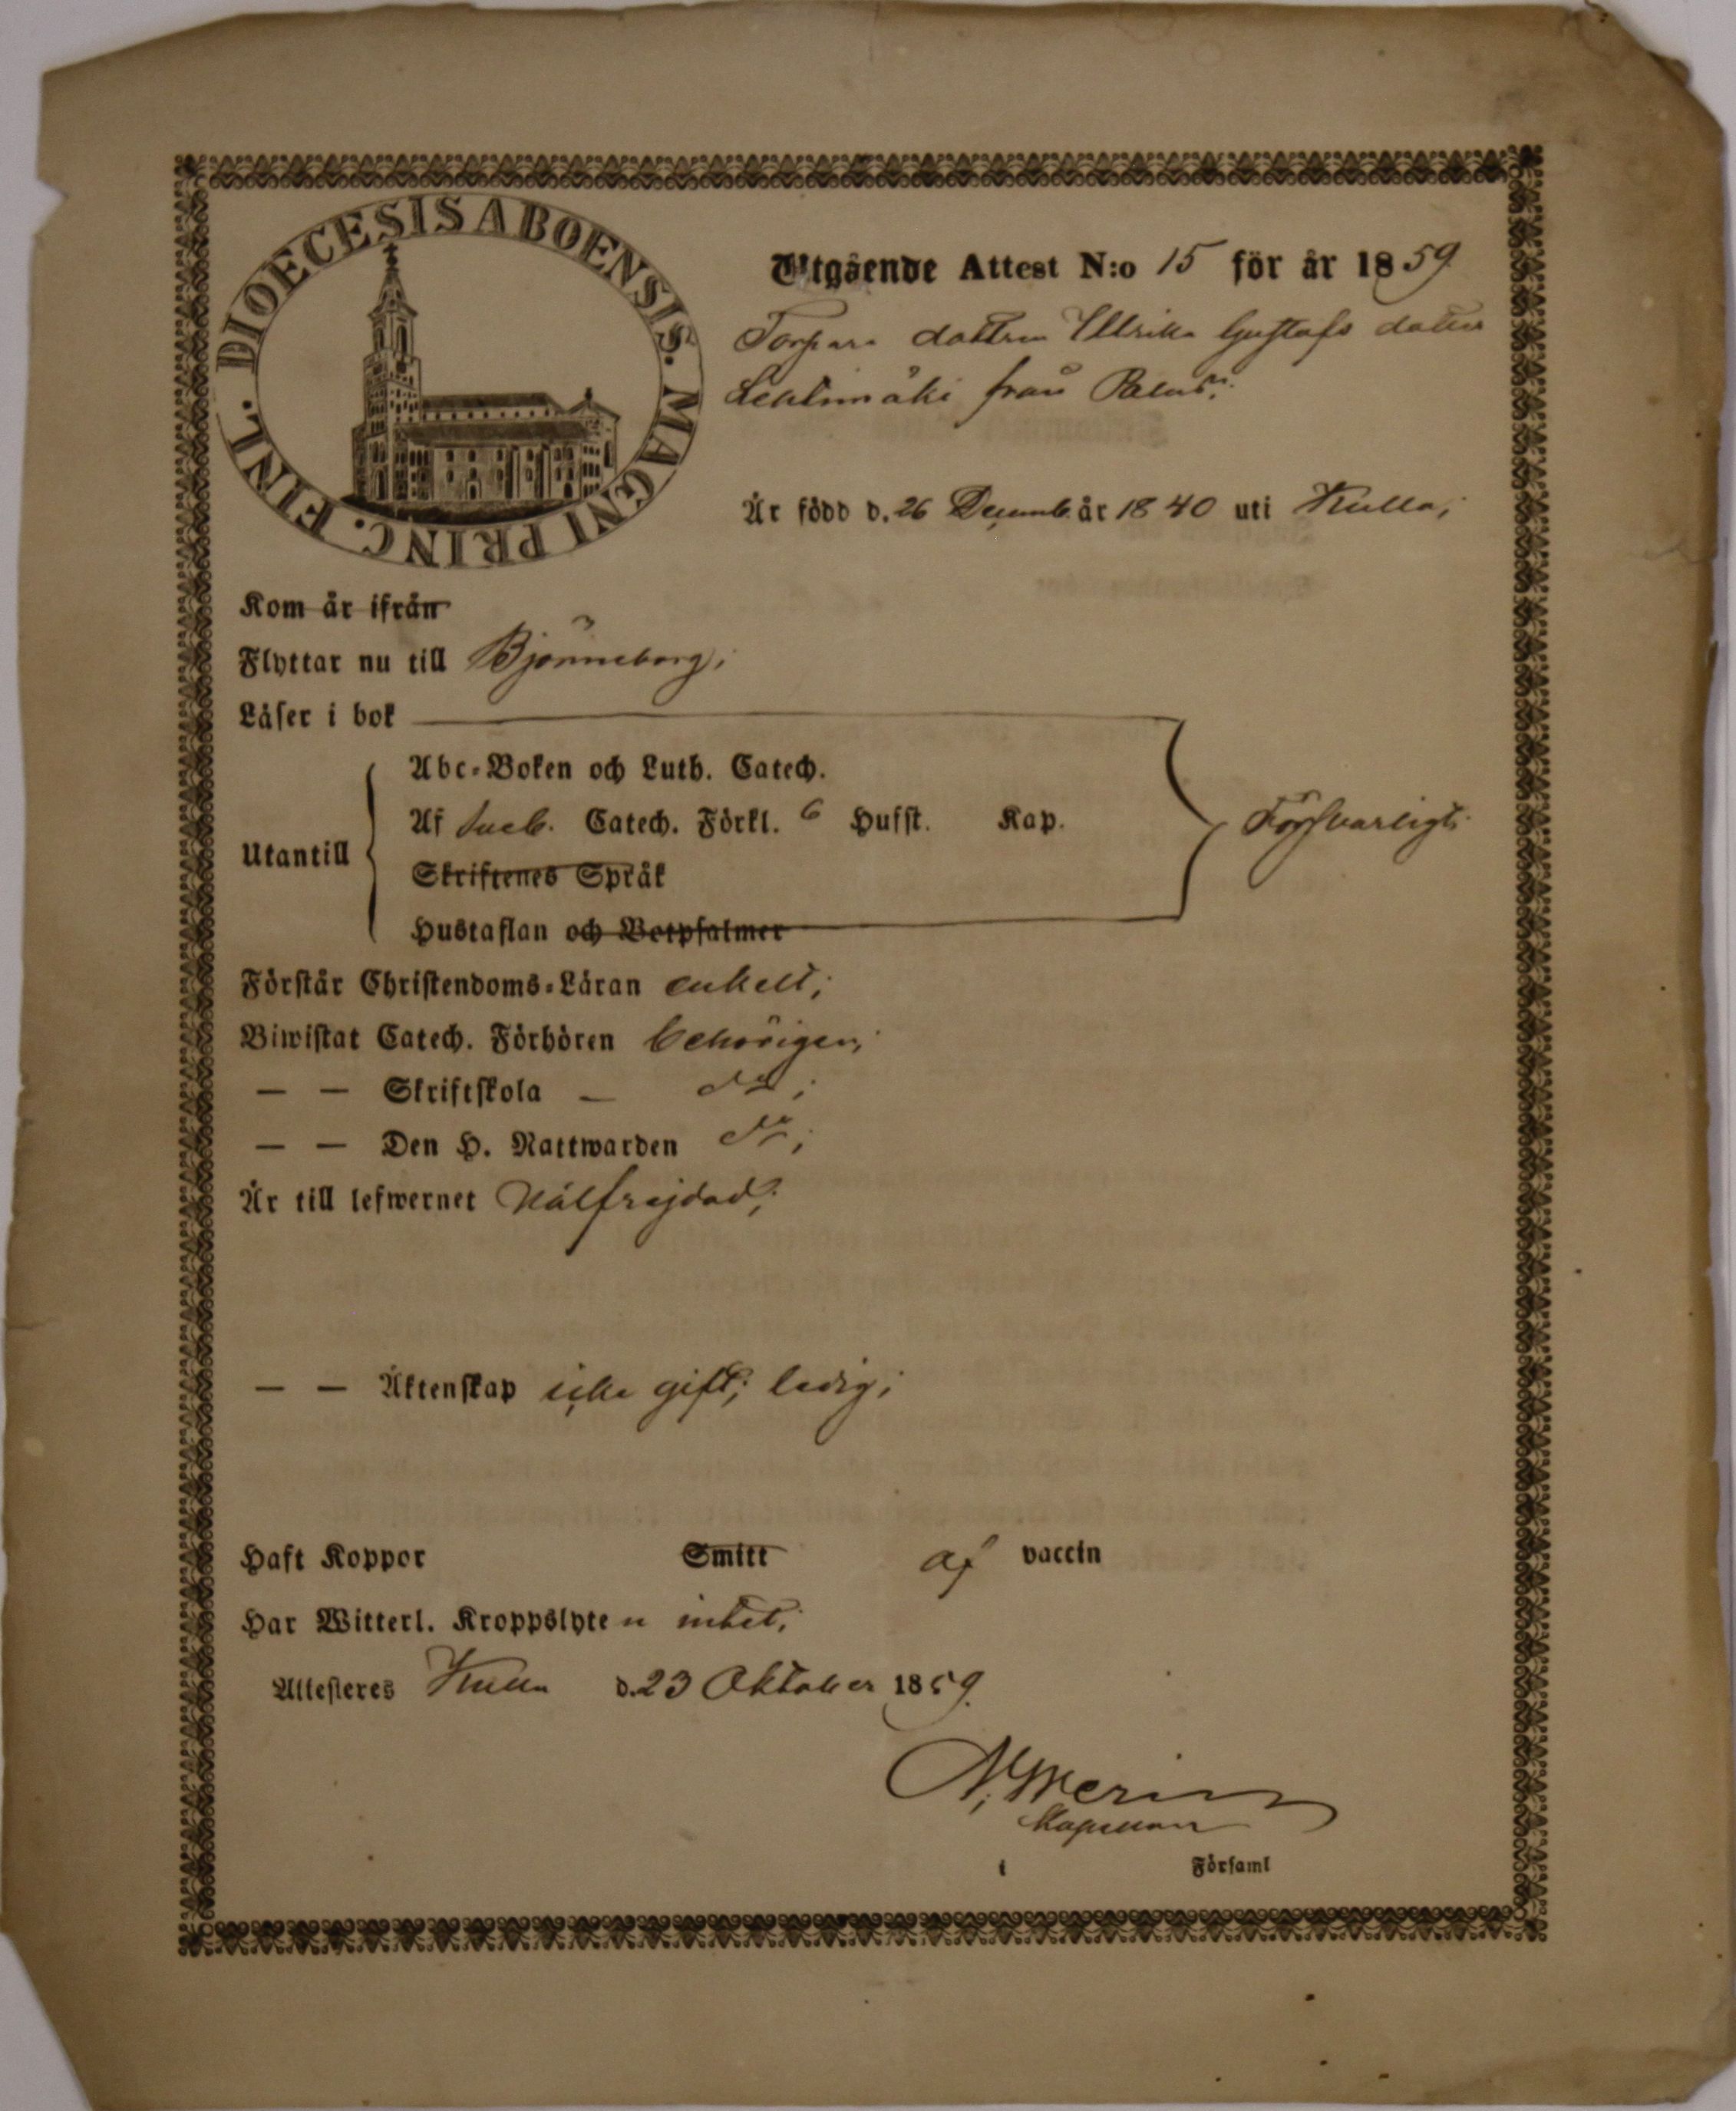 DIOECESIS ABOENSIS. MAGNI PRINC. FINL.
Utgående Attest N:o 15 för år 1859
Torpare dottren Ulrika Gustafs dotter
från
Är född d. 26 Decemb. år 1840 uti Kulla;
Kom år ifrån
Flyttar nu till Björneborg;
Läser i bok
Abc-Boken och Luth. Catech.
Af Sveb. Catech. Förkl. 6 Husst. Kap. Försvarligt;
Utantill
Skriftenes Språk
Hustaflan och Botpsalmer
Förstår Christendoms-Läran enkelt;
Biwistat Catech. Förhören behörigen;
— — Skriftskola — do;
— — Den H. Nattwarden do;
Är till lefwernet Välfrejdad;
— — Äktenskap icke gift; ledig;
Haft Koppor Smitt af vaccin
Har Witterl. Kroppslyte n intet;
Attesteres Kulla d. 23 Oktober 1859.
Kapellan
i Församl